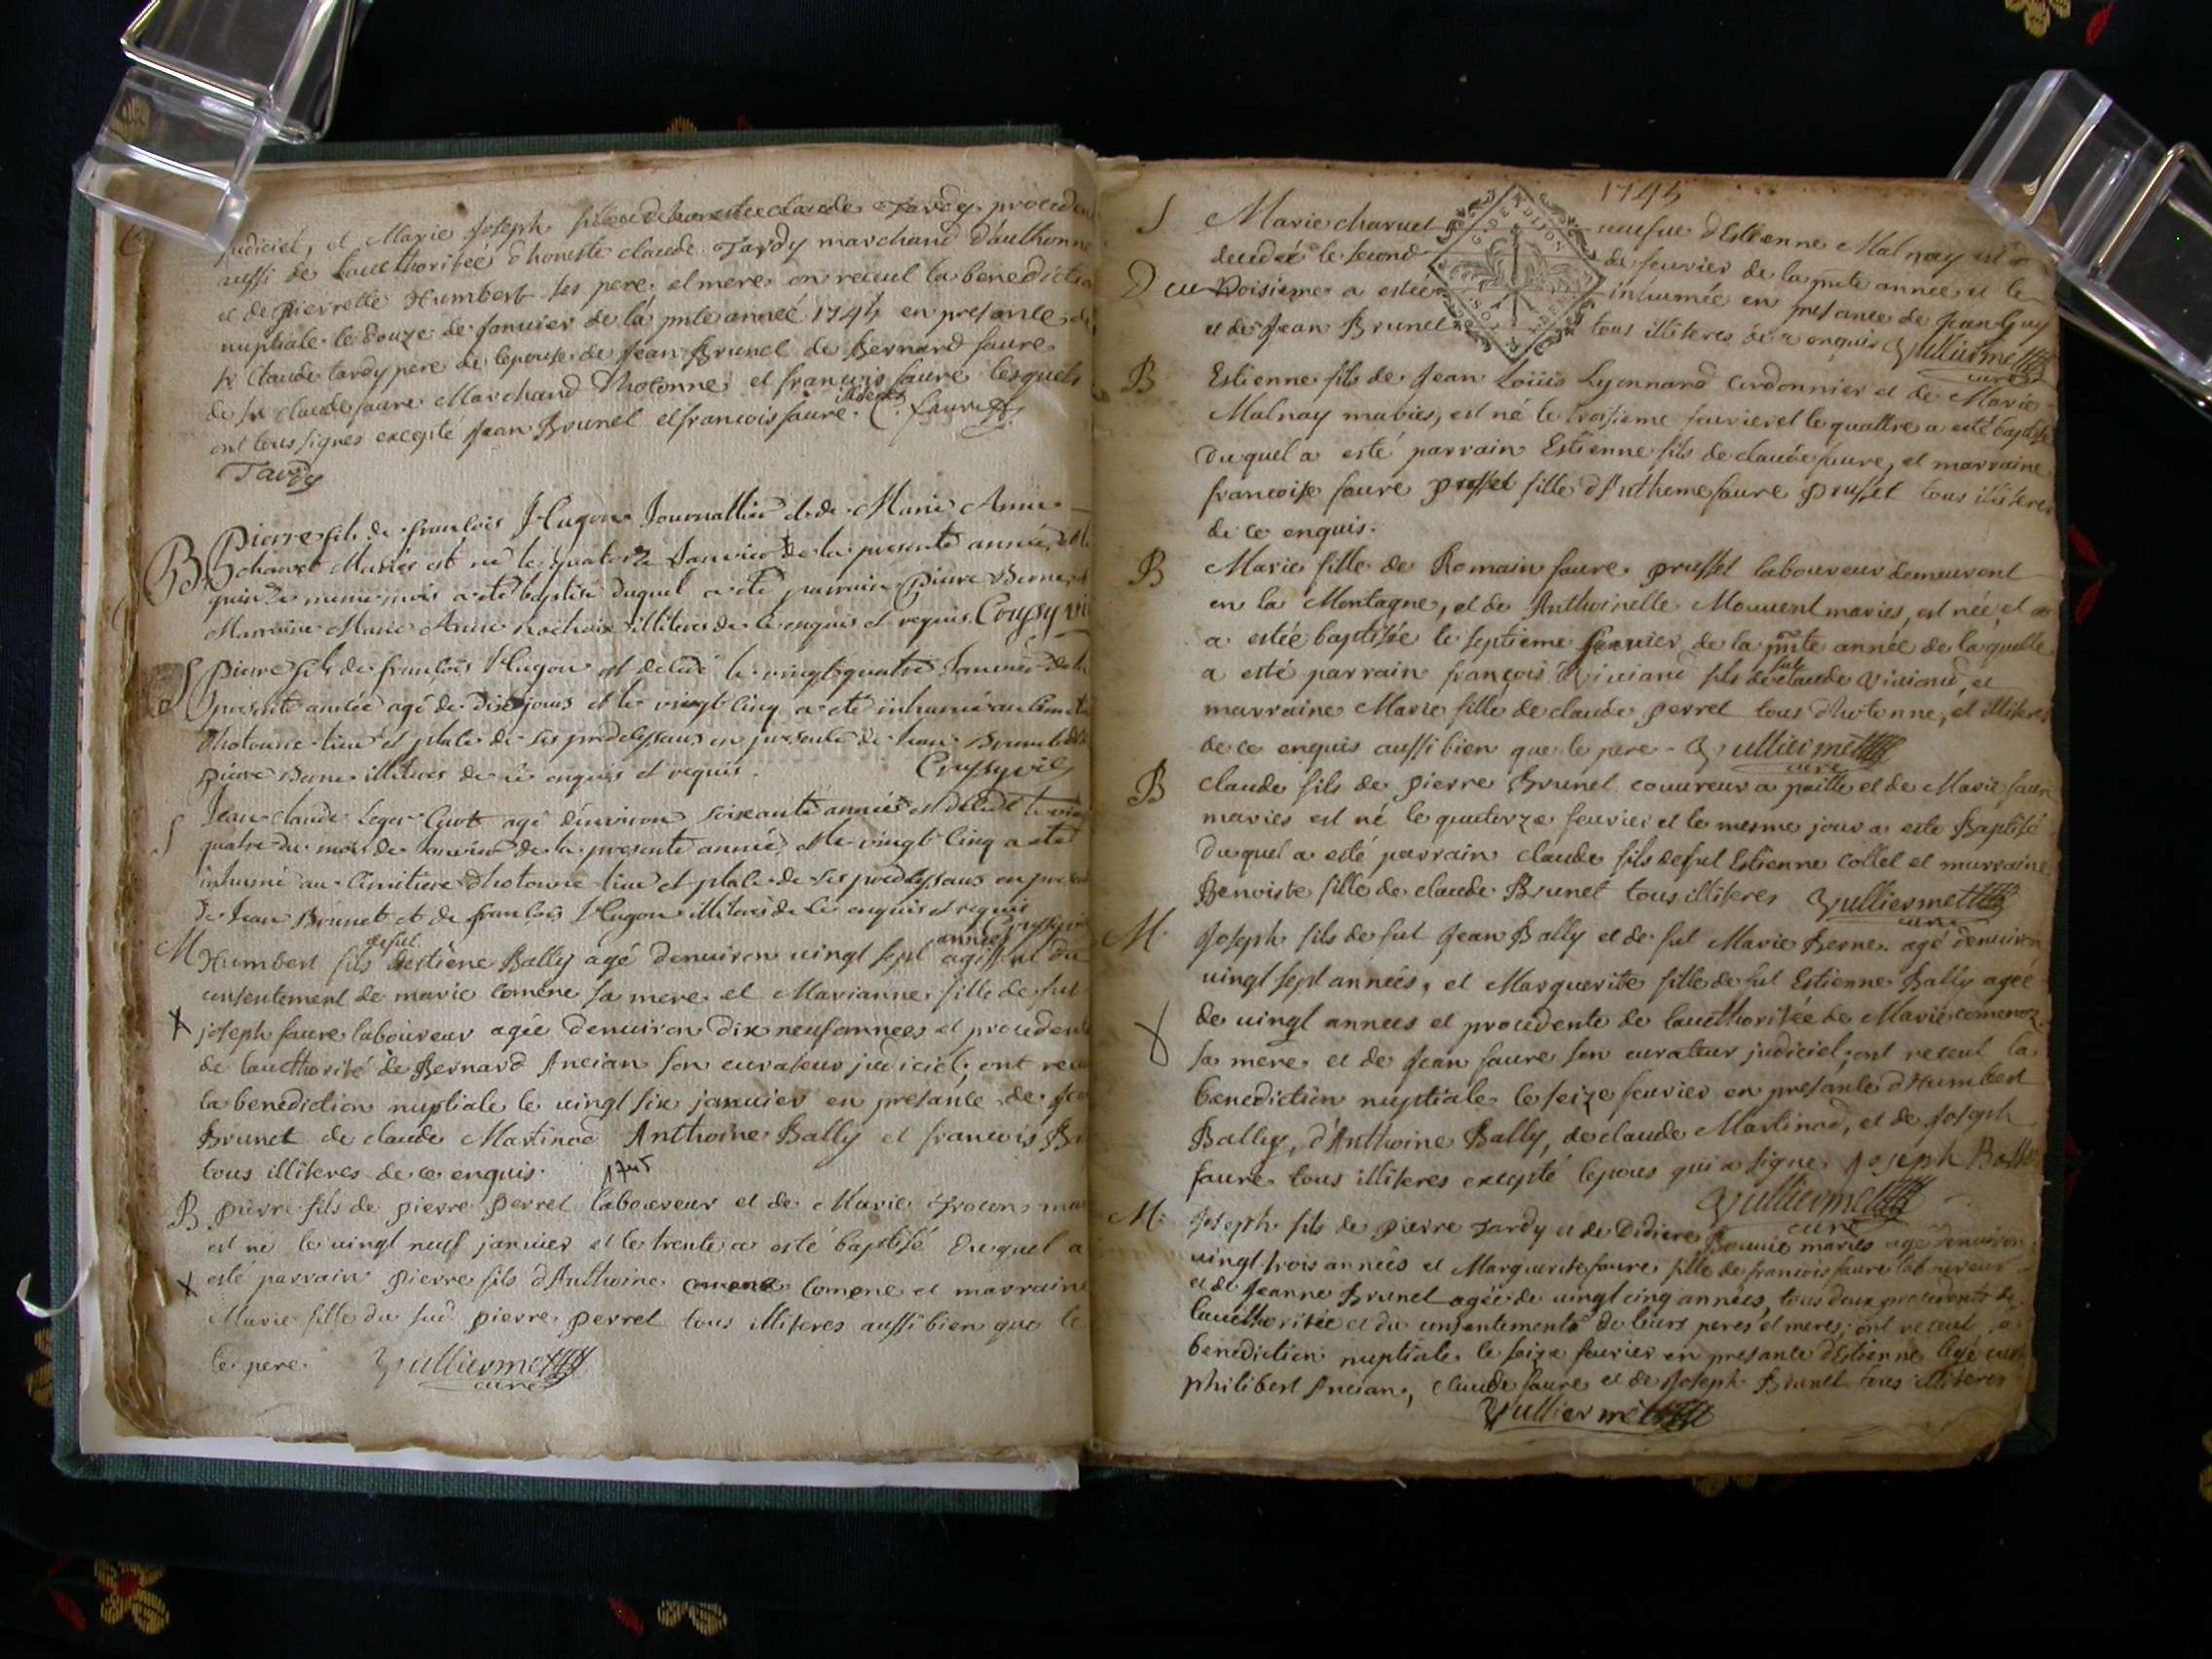 judiciel, et Marie Joseph fille d'honeste claude Tardy procedent
aussi de Laucthorisée d'honeste claude Tardy marchand d'authonne
et de Pierrette Humbert ses pere et mere on receul la benedictio
nuptiale le douze de Janvier de la pnte année 1745 en presance de
sr Claude tardy pere de lepouse de Jean Brunet de Bernard faure
de sr claude faure Marchand dhotonne et francois faure lesquels
ont tous signes excepté Jean Brunet et francois faure illiteres C. faure
Tardy
B Pierre fils de francois Hugon Journallier et de Marie Anne
charvet Mariés est né le quatorze Janvier de la presente année, et le
quinze meme mois a eté baptisé duquel a eté parrain Pierre Berne et
Marraine Marie Anne illiteres de ce enquis et requis Croysy vic
S Pierre fils de francois Hugon est decedé le vingt quatre Janvier de la
presente année agé de dix jours et le vingt cinq a eté inhumé au cimetie
dhotonne lieu et place de ses predecesseurs en presence de Jean Brunet
Pierre Berne illiteres de ce enquis et requis. Croysy vic
S Jean claude Leger Curt agé denviron soixante années est decedé le vin
quatre du mois de Janvier de la presente année, et le vingt cinq a eté
inhumé au cimitiere dhotonne lieu et place de ses predecesseurs en pre
de Jean Brunet et de francois Hugon illiteres de ce enquis et requis
M Humbert fils de ful estiene Bally agé denuiron uingt sept années agissant du
consentement de marie comene sa mere et Marianne fille de ful
joseph faure laboureur agée denuiron dix neuf annees et procedente
de laucthorité de Bernard Ancian son curateur judiciel; ont rece
la benediction nuptiale le uingt six januier en presance de Jea
Brunet de claude Martinod Anthoine Bally et francois Br
tous illiteres de ce enquis. 1745
B pierre fils de pierre perret laboureur et de Marie mar
est né le uingt neuf januier et le trente a esté baptisé Duquel a
esté parrain pierre fils d'Anthoine comene et marraine
Marie fille du sud pierre perret tous illiteres aussi bien que le
le pere. Vulliermet
curé
1745
S Marie charuet ueufue dEstienne Malnay est
decedée le second de feurier de la pnte annee et le
troisieme a esté inhumée en presance de Jean Guy
et de Jean Brunet tous illiteres de ce enquis Vulliermet
curé
B Estienne fils de Jean Loüis Lyonnard cordonnier et de Marie
Malnay maries, est né le troisieme feurier et le quattre a esté baptisé
Duquel a esté parrain Estienne fils de claude faure, et marraine
francoise faure prosset fille d'Antheme faure prosset tous illiteres
de ce enquis.
B Marie fille de Romain faure prosset laboureur demeurent
en la Montagne, et de Anthoinette Mouuent maries, est née, et
a estée baptisée le septieme feurier de la pnte année de laquelle
a esté parrain françois Viuiand fils de ful claude Viuiand, et
marraine Marie fille de claude perret tous dhotonne, et illiteres
de ce enquis aussi bien que le pere - Vulliermet
curé
B claude fils de pierre Brunet couureur a paille et de Marie faure
maries est né le quatorze feurier et le mesme jour a este Baptisé
Duquel a esté parrain claude fils de ful Estienne Collet et marraine
Benoiste fille de claude Brunet tous illiteres Vulliermet
curé
M. Joseph fils de ful Jean Bally et de ful Marie Berne agé denuiron
uingt sept années, et Marguerite fille de ful Estienne Bally agée
de uingt annees et procedente de laucthorisée de Marie comenoz
sa mere et de Jean faure son curateur judiciel; ont receul la
benediction nuptiale le seize feurier en presante d'Humbert
Bally, d'Anthoine Bally, de claude Martinod, et de Joseph
faure tous illiteres excepté lepoux qui a signe Joseph Balli
Vulliermet
curé
M. Joseph fils de pierre Tardy et de Didiere maries agé denuiron
uingt trois années et Marguerite faure fille de francois faure laboureur
et de Jeanne Brunet agée de uingt cinq années, tous deux procedents de
laucthorisée et du consentements de leurs peres et meres; ont receul la
benediction nuptiale le seize feurier en presante dEstienne legé
philibert Ancian, claude faure et de Joseph Brunet tous illiteres
Vulliermet